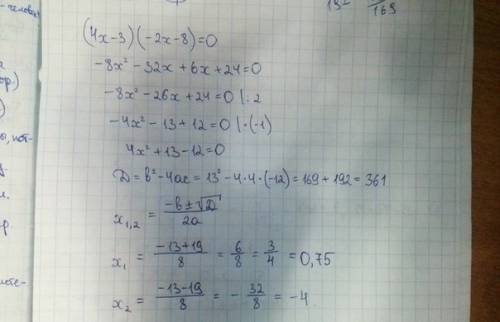 -человек
19²
169
(4x-3)(-2x-8)=0
-8x² - 32x + 6x + 24 = 0
-8x² - 26x + 24 = 0 | : 2
-4x² - 13 + 12 = 0 | · (-1)
4x² + 13 - 12 = 0
D = b² - 4ac = 13² - 4·4·(-12) = 169 + 192 = 361
x₁,₂ = (-b ± √D)/2a
x₁ = (-13+19)/8 = 6/8 = 3/4 = 0,75
x₂ = (-13-19)/8 = - 32/8 = -4